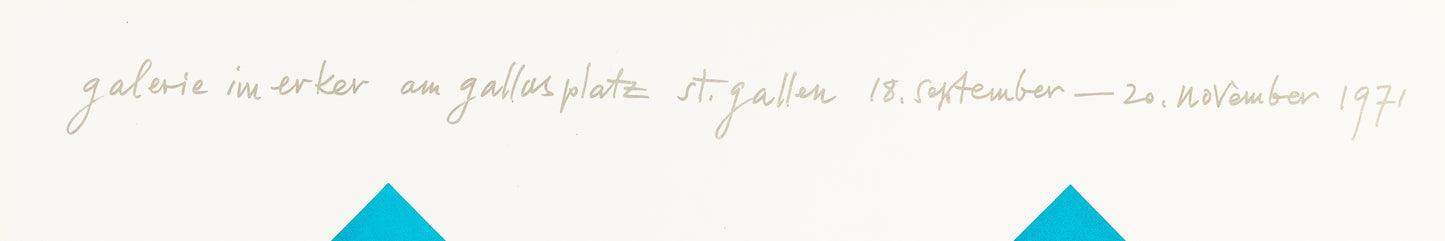 galerie im erker am gallusplatz st. gallen 18. september — 20. november 1971